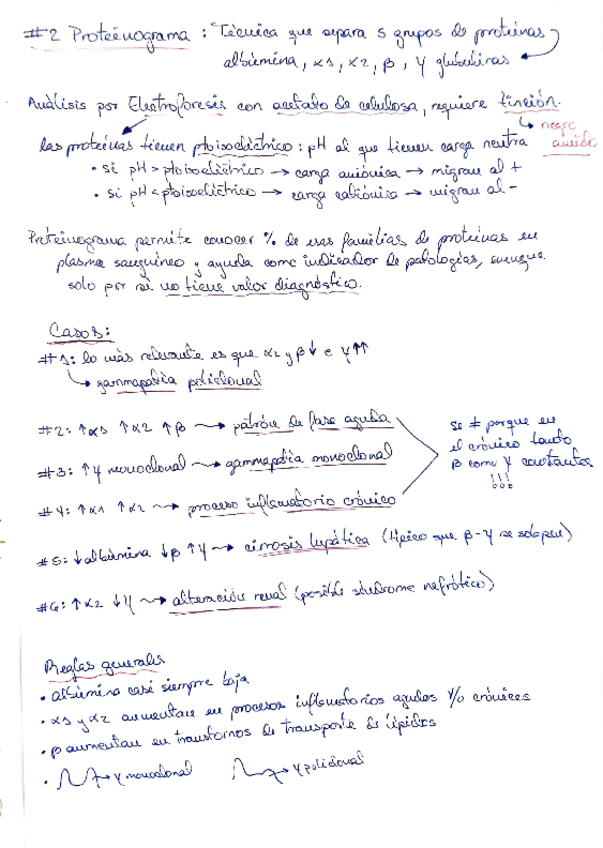 #2 Proteinograma : "Técnica que separa 5 grupos de proteínas
albúmina, α1, α2, β, γ globulinas
Análisis por Electroforesis con acetato de celulosa, requiere tinción.
negro
amido
las proteínas tienen ptoisoeléctrico : pH al que tienen carga neutra
• si pH > ptoisoeléctrico → carga aniónica → migran al +
• si pH < ptoisoeléctrico → carga catiónica → migran al -
Proteinograma permite conocer % de esas familias de proteínas en
plasma sanguíneo y ayuda como indicador de patologías, aunque
solo por sí no tiene valor diagnóstico.
Casos:
#1: lo más relevante es que α2 y β ↓ e γ ↑↑
↳ gammapatía policlonal
#2: ↑α1 ↑α2 ↑β → patrón de fase aguda
#3: ↑γ monoclonal → gammapatía monoclonal
#4: ↑α1 ↑α2 → proceso inflamatorio crónico
se ≠ porque en
el crónico tanto
β como γ constantes
!!!
#5: ↓albúmina ↓β ↑γ → cirrosis hepática (típico que β-γ se solapen)
#6: ↑α2 ↓γ → alteración renal (posible síndrome nefrótico)
Reglas generales
• albúmina casi siempre baja
• α1 y α2 aumentan en procesos inflamatorios agudos y/o crónicos
• β aumentan en trastornos de transporte de lípidos
• → γ monoclonal → γ policlonal